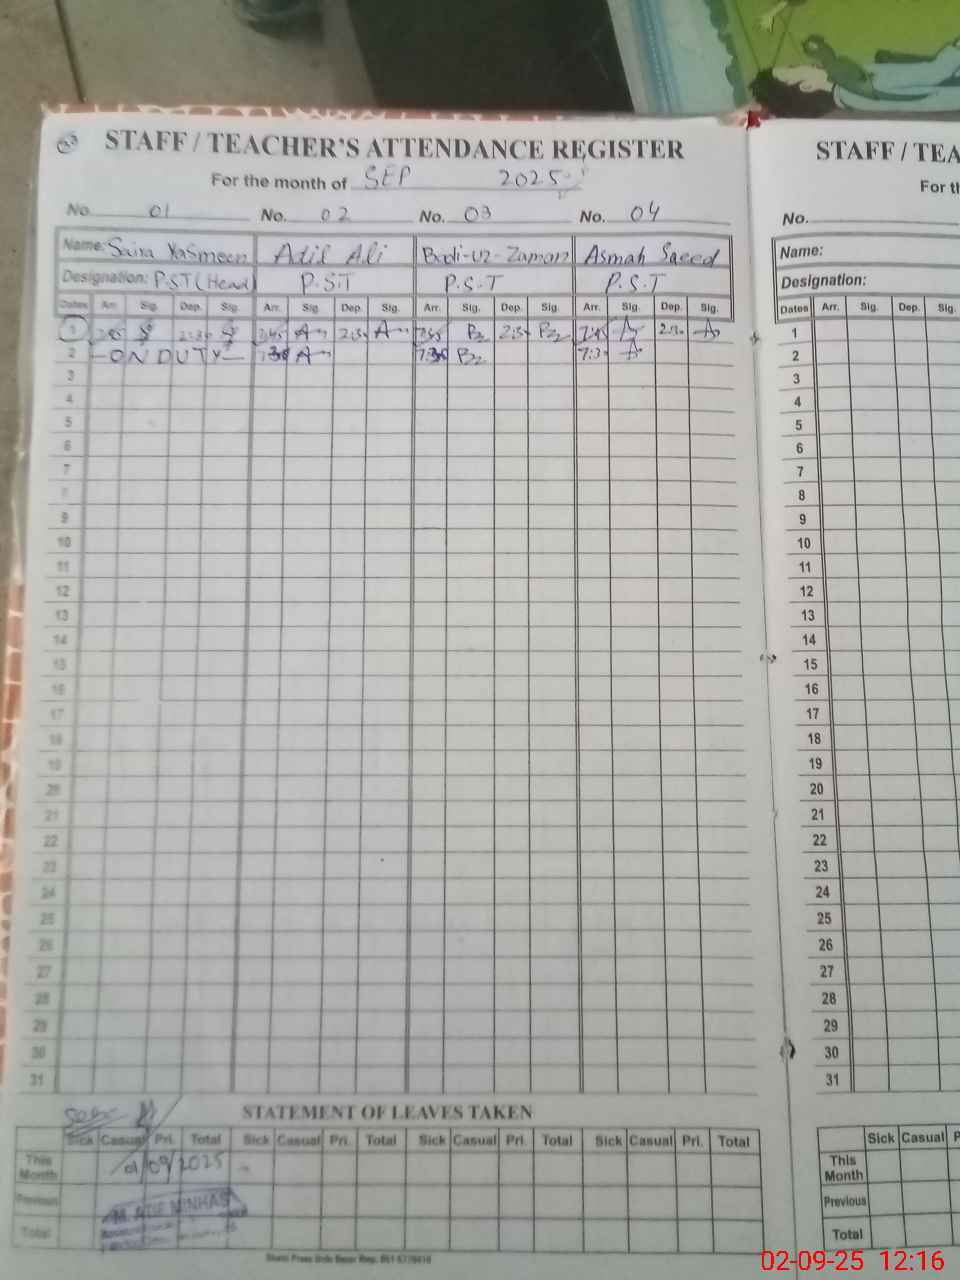 STAFF / TEACHER'S ATTENDANCE REGISTER
For the month of SEP 2025
No. 01 No. 02 No. 03 No. 04
Name: Saira Yasmeen Adil Ali Badi-uz-Zaman Asmah Saeed
Designation: P.ST (Head) P.S.T P.S.T P.S.T
Dates Arr. Sig. Dep. Sig. Arr. Sig. Dep. Sig. Arr. Sig. Dep. Sig. Arr. Sig. Dep. Sig.
1 7:45 2:30 7:45 A 2:30 A 7:45 Bz 2:30 Bz 7:45 A 2:30 A
2 - ON DUTY - 7:30 A 7:30 Bz 7:30 A
3
4
5
6
7
8
9
10
11
12
13
14
15
16
17
18
19
20
21
22
23
24
25
26
27
28
29
30
31
STATEMENT OF LEAVES TAKEN
Sick Casual Pri. Total Sick Casual Pri. Total Sick Casual Pri. Total Sick Casual Pri. Total
This Month 01/09/2025
Previous
Total
STAFF / TEA
For th
No.
Name:
Designation:
Dates Arr. Sig. Dep. Sig.
1
2
3
4
5
6
7
8
9
10
11
12
13
14
15
16
17
18
19
20
21
22
23
24
25
26
27
28
29
30
31
Sick Casual P
This Month
Previous
Total
02-09-25 12:16